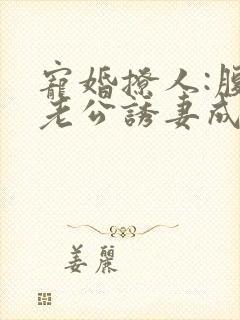 寵婚撩人:腹
老公誘妻成
姜麗